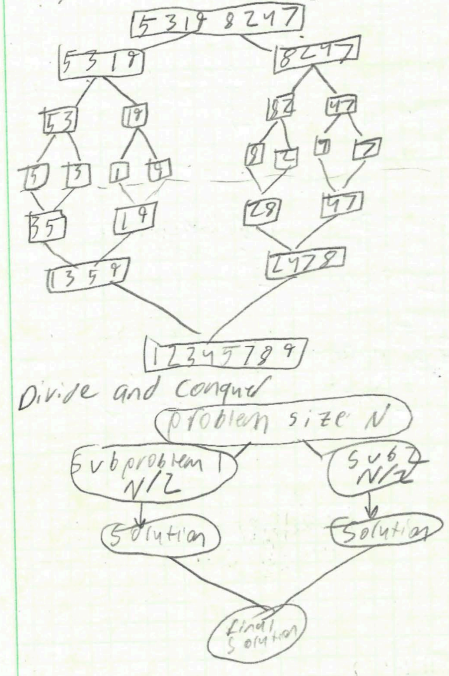 5 3 1 9 8 2 4 7
5 3 1 9 8 2 4 7
53 19 82 47
5 3 1 9 8 2 4 7
35 19 28 47
1 3 5 9 2 4 7 8
1 2 3 4 5 7 8 9
Divide and Conquer
problem size N
Subproblem 1 Sub 2
N/2 N/2
Solution Solution
final
Solution